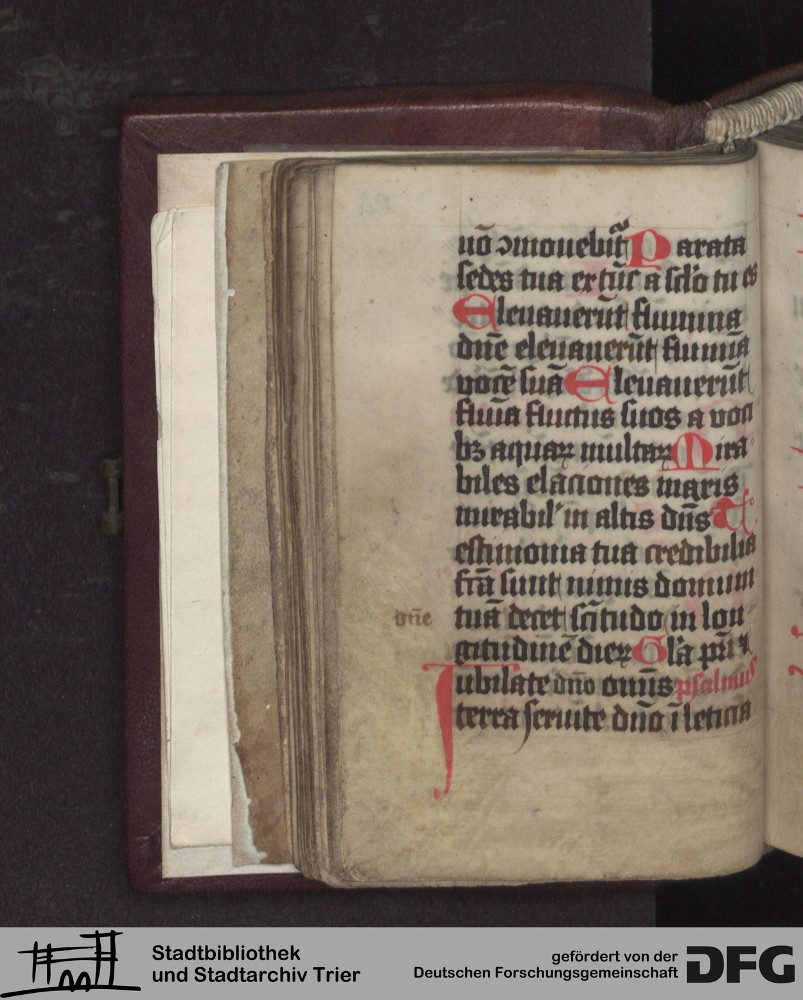 nō ↄmouebit̄᷑ Parata
sedes tua ex tūc a sclo tu es
Eleuauerūt flumina
dn̄e eleuauerūt flumīa
vocē suā Eleuauerūt
flūīa fluctus suos a voci
bꝫ aquaꝝ multaꝝ Mira
biles elaciones maris
mirabil' in altis dn̄s T
estimonia tua credibilia
fc̄a sunt nimis domum
dn̄e tuā decet sc̄itudo in lon
gitudinē dieꝝ Gl'a pr̄i ⁊
Iubilate dn̄o om̄is psalmus
terra seruite dn̄o ī leticia
Stadtbibliothek
und Stadtarchiv Trier
gefördert von der
Deutschen Forschungsgemeinschaft
DFG